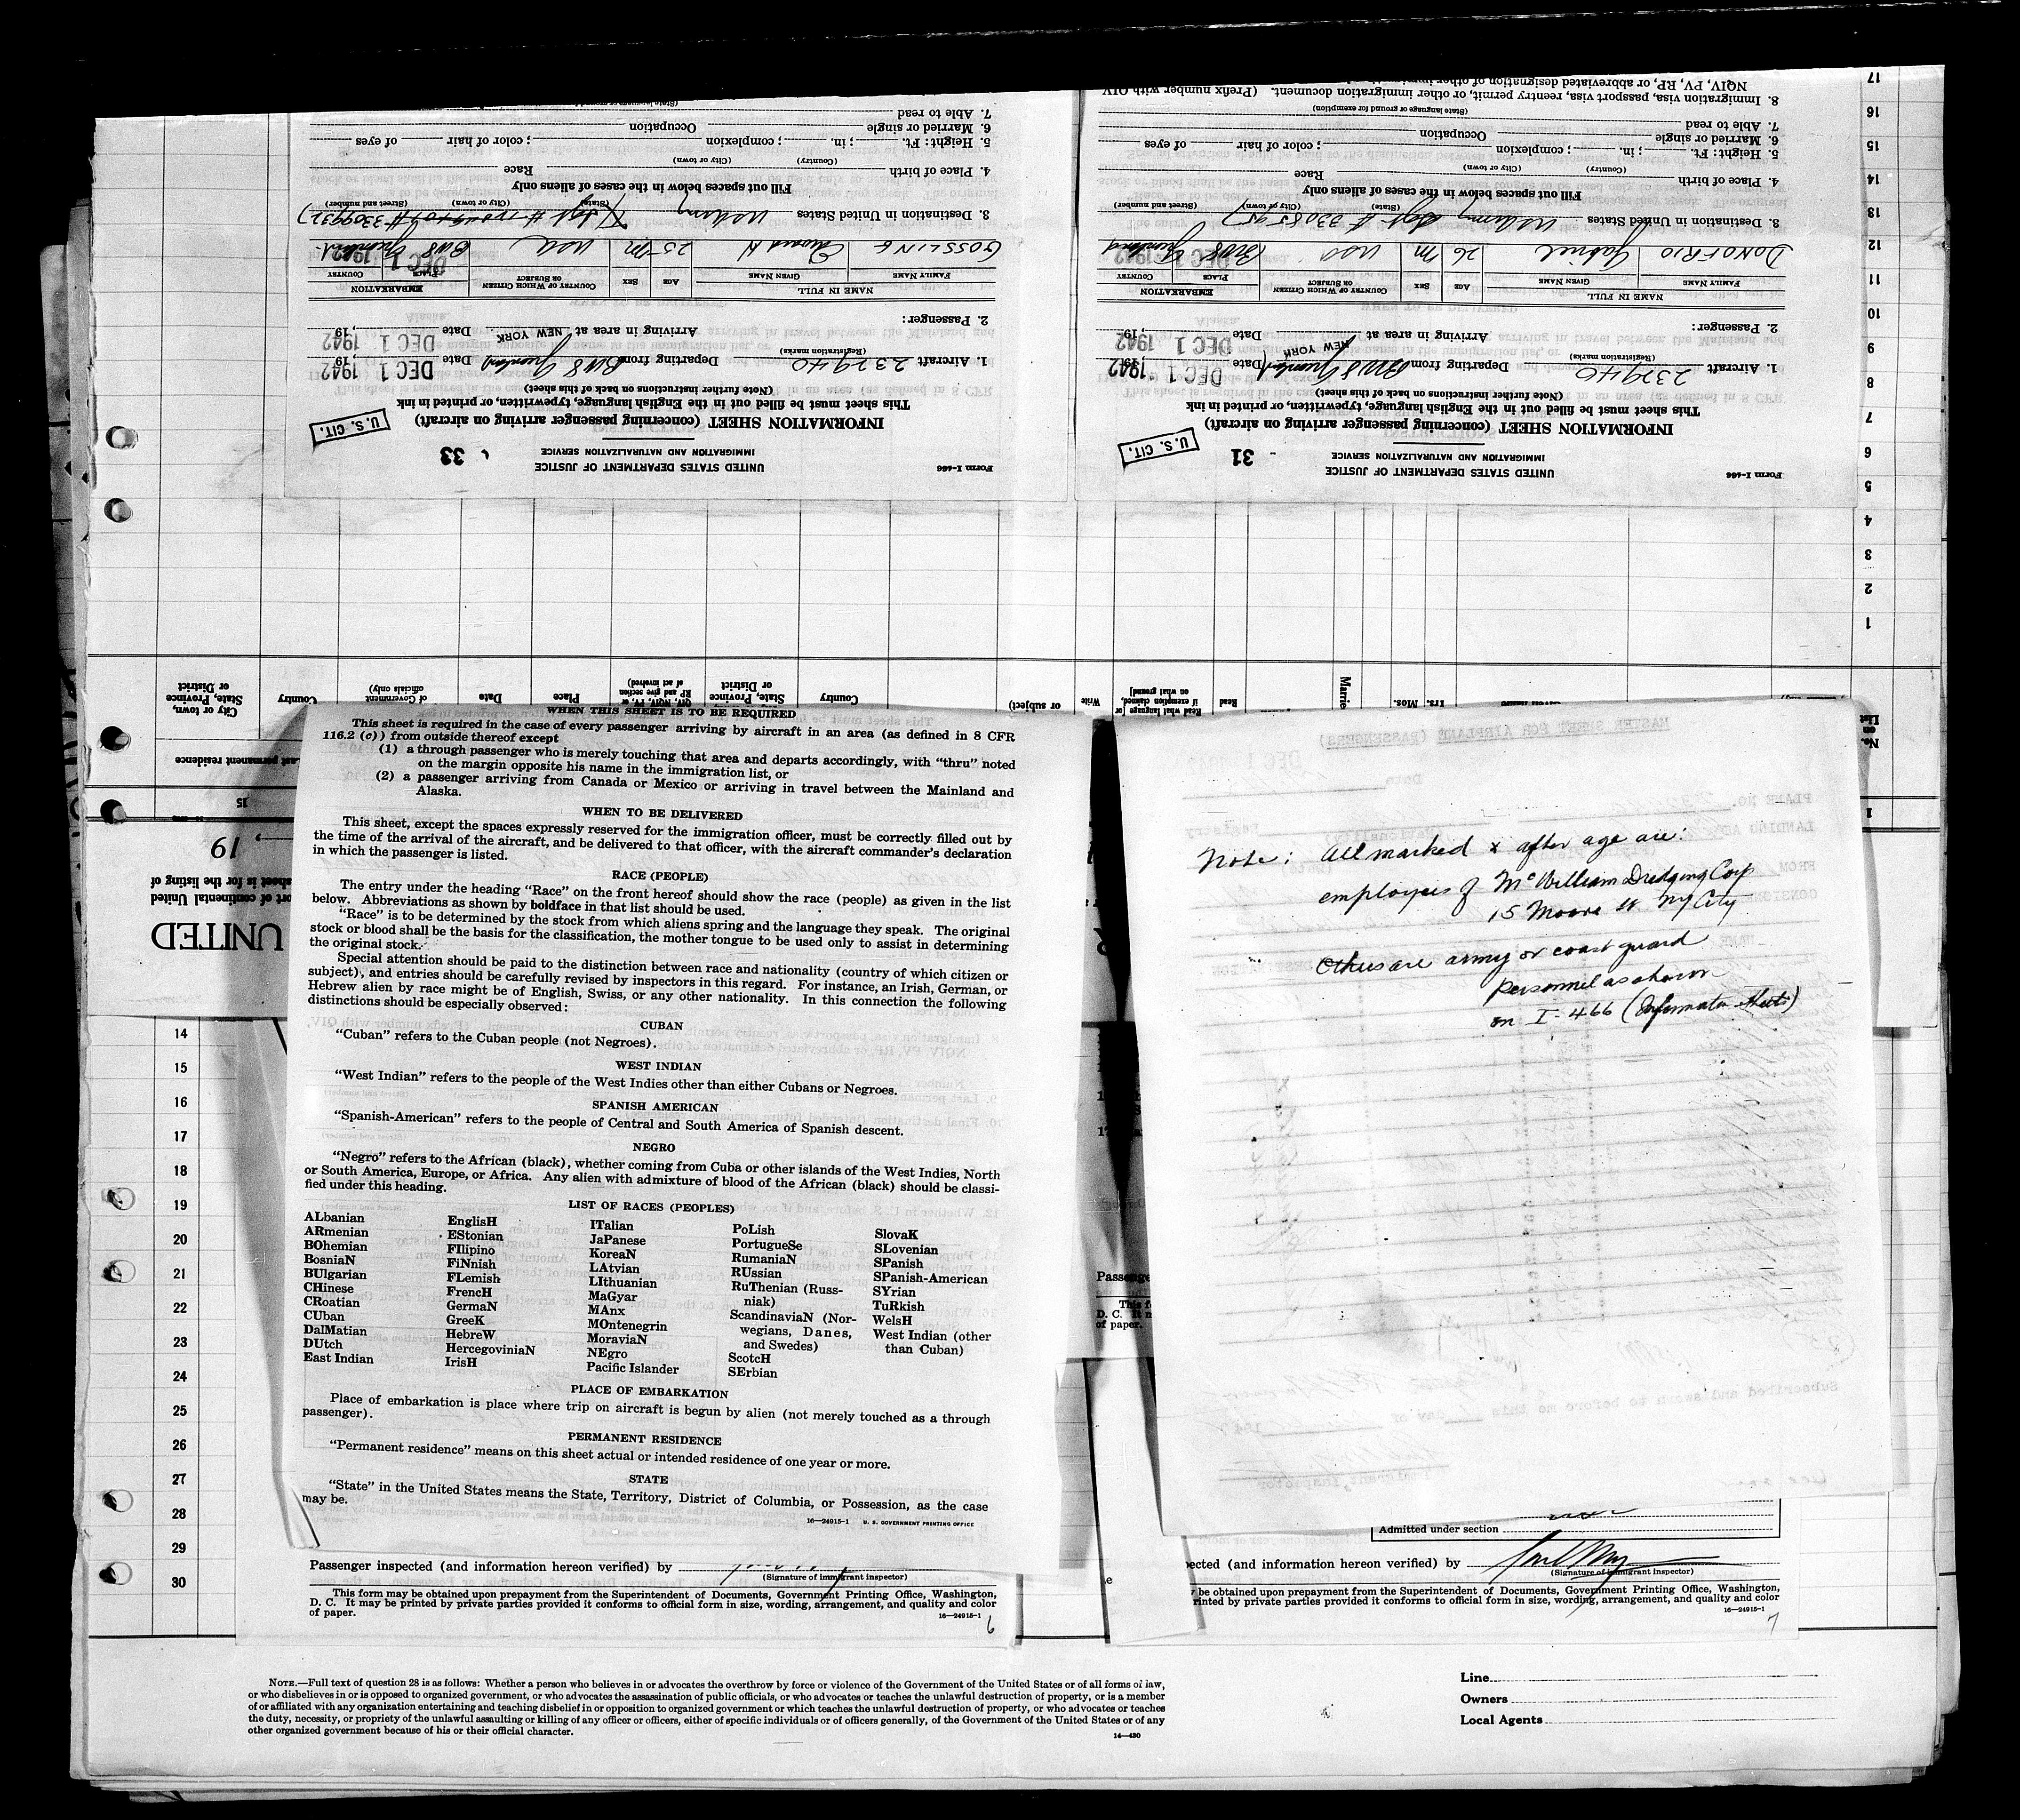 Form I-466
UNITED STATES DEPARTMENT OF JUSTICE
IMMIGRATION AND NATURALIZATION SERVICE
33
U. S. CIT.
INFORMATION SHEET (concerning passenger arriving on aircraft)
This sheet must be filled out in the English language, typewritten, or printed in ink
(Note further instructions on back of this sheet)
1. Aircraft 232940 Departing from BW8 Greenland Date DEC 1 1942, 19
(Registration marks)
Arriving in area at NEW YORK Date DEC 1 1942, 19
2. Passenger:
NAME IN FULL
EMBARKATION
FAMILY NAME GIVEN NAME AGE SEX COUNTRY OF WHICH CITIZEN OR SUBJECT PLACE COUNTRY
GOSSLING Edward H 25 M USA BW8 Greenland
DEC 1 1942
3. Destination in United States US Army
(State) (City or town) (Street and number)
Fill out spaces below in the cases of aliens only
4. Place of birth Race
(Country) (City or town)
5. Height: Ft. ; in. ; complexion ; color of hair ; of eyes
6. Married or single Occupation
7. Able to read
(State language or ground for exemption)
Form I-466
UNITED STATES DEPARTMENT OF JUSTICE
IMMIGRATION AND NATURALIZATION SERVICE
31
U. S. CIT.
INFORMATION SHEET (concerning passenger arriving on aircraft)
This sheet must be filled out in the English language, typewritten, or printed in ink
(Note further instructions on back of this sheet)
1. Aircraft 232940 Departing from BW8 Greenland Date DEC 1 1942, 19
(Registration marks)
Arriving in area at NEW YORK Date DEC 1 1942, 19
2. Passenger:
NAME IN FULL
EMBARKATION
FAMILY NAME GIVEN NAME AGE SEX COUNTRY OF WHICH CITIZEN OR SUBJECT PLACE COUNTRY
DONOFRIO Gabriel 26 M USA BW8 Greenland
DEC 1 1942
3. Destination in United States US Army Sgt # 33085957
(State) (City or town) (Street and number)
Fill out spaces below in the cases of aliens only
4. Place of birth Race
(Country) (City or town)
5. Height: Ft. ; in. ; complexion ; color of hair ; of eyes
6. Married or single Occupation
7. Able to read
(State language or ground for exemption)
8. Immigration visa, passport visa, reentry permit, or other immigration document. (Prefix number with QIV,
NQIV, PV, RP, or abbreviated designation of other
17
16
15
14
13
12
11
10
9
8
7
6
5
4
3
2
1
No. on List
Yrs. Mos.
Read
Read what language [or if exemption claimed, on what ground]
Write
or subject)
Country
City or town, State, Province or District
Place
Date
Country
City or town, State, Province or District
Last permanent residence
15
19
UNITED
WHEN THIS SHEET IS TO BE REQUIRED
This sheet is required in the case of every passenger arriving by aircraft in an area (as defined in 8 CFR
116.2 (c)) from outside thereof except
(1) a through passenger who is merely touching that area and departs accordingly, with “thru” noted
on the margin opposite his name in the immigration list, or
(2) a passenger arriving from Canada or Mexico or arriving in travel between the Mainland and
Alaska.
WHEN TO BE DELIVERED
This sheet, except the spaces expressly reserved for the immigration officer, must be correctly filled out by
the time of the arrival of the aircraft, and be delivered to that officer, with the aircraft commander's declaration
in which the passenger is listed.
RACE (PEOPLE)
The entry under the heading “Race” on the front hereof should show the race (people) as given in the list
below. Abbreviations as shown by boldface in that list should be used.
“Race” is to be determined by the stock from which aliens spring and the language they speak. The original
stock or blood shall be the basis for the classification, the mother tongue to be used only to assist in determining
the original stock.
Special attention should be paid to the distinction between race and nationality (country of which citizen or
subject), and entries should be carefully revised by inspectors in this regard. For instance, an Irish, German, or
Hebrew alien by race might be of English, Swiss, or any other nationality. In this connection the following
distinctions should be especially observed:
CUBAN
“Cuban” refers to the Cuban people (not Negroes).
WEST INDIAN
“West Indian” refers to the people of the West Indies other than either Cubans or Negroes.
SPANISH AMERICAN
“Spanish-American” refers to the people of Central and South America of Spanish descent.
NEGRO
“Negro” refers to the African (black), whether coming from Cuba or other islands of the West Indies, North
or South America, Europe, or Africa. Any alien with admixture of blood of the African (black) should be classi-
fied under this heading.
LIST OF RACES (PEOPLES)
ALbanian
ARmenian
BOhemian
BosniaN
BUlgarian
CHinese
CRoatian
CUban
DalMatian
DUtch
East Indian
EnglisH
EStonian
FIlipino
FiNnish
FLemish
FrencH
GermaN
GreeK
HebreW
HercegoviniaN
IrisH
ITalian
JaPanese
KoreaN
LAtvian
LIthuanian
MaGyar
MAnx
MOntenegrin
MoraviaN
NEgro
Pacific Islander
PoLish
PortugueSe
RumaniaN
RUssian
RuThenian (Russ-
niak)
ScandinaviaN (Nor-
wegians, Danes,
and Swedes)
ScotcH
SErbian
SlovaK
SLovenian
SPanish
SPanish-American
SYrian
TuRkish
WelsH
West Indian (other
than Cuban)
PLACE OF EMBARKATION
Place of embarkation is place where trip on aircraft is begun by alien (not merely touched as a through
passenger).
PERMANENT RESIDENCE
“Permanent residence” means on this sheet actual or intended residence of one year or more.
STATE
“State” in the United States means the State, Territory, District of Columbia, or Possession, as the case
may be.
16—24915-1 U. S. GOVERNMENT PRINTING OFFICE
Note: All marked x after age are:
employees of McWilliam Dredging Corp
15 Moore St NyCity
Others are army or coast guard
personnel as shown
on I-466 (Information Sheets)
14
15
16
17
18
19
20
21
22
23
24
25
26
27
28
29
30
Passenger inspected (and information hereon verified) by
(Signature of immigrant inspector)
This form may be obtained upon prepayment from the Superintendent of Documents, Government Printing Office, Washington,
D. C. It may be printed by private parties provided it conforms to official form in size, wording, arrangement, and quality and color
of paper.
16—24915-1
Admitted under section
ected (and information hereon verified) by
(Signature of immigrant inspector)
be obtained upon prepayment from the Superintendent of Documents, Government Printing Office, Washington,
rinted by private parties provided it conforms to official form in size, wording, arrangement, and quality and color
16—24915-1
NOTE.—Full text of question 28 is as follows: Whether a person who believes in or advocates the overthrow by force or violence of the Government of the United States or of all forms of law,
or who disbelieves in or is opposed to organized government, or who advocates the assassination of public officials, or who advocates or teaches the unlawful destruction of property, or is a member
of or affiliated with any organization entertaining and teaching disbelief in or opposition to organized government or which teaches the unlawful destruction of property, or who advocates or teaches
the duty, necessity, or propriety of the unlawful assaulting or killing of any officer or officers, either of specific individuals or of officers generally, of the Government of the United States or of any
other organized government because of his or their official character.
16—430
Line
Owners
Local Agents